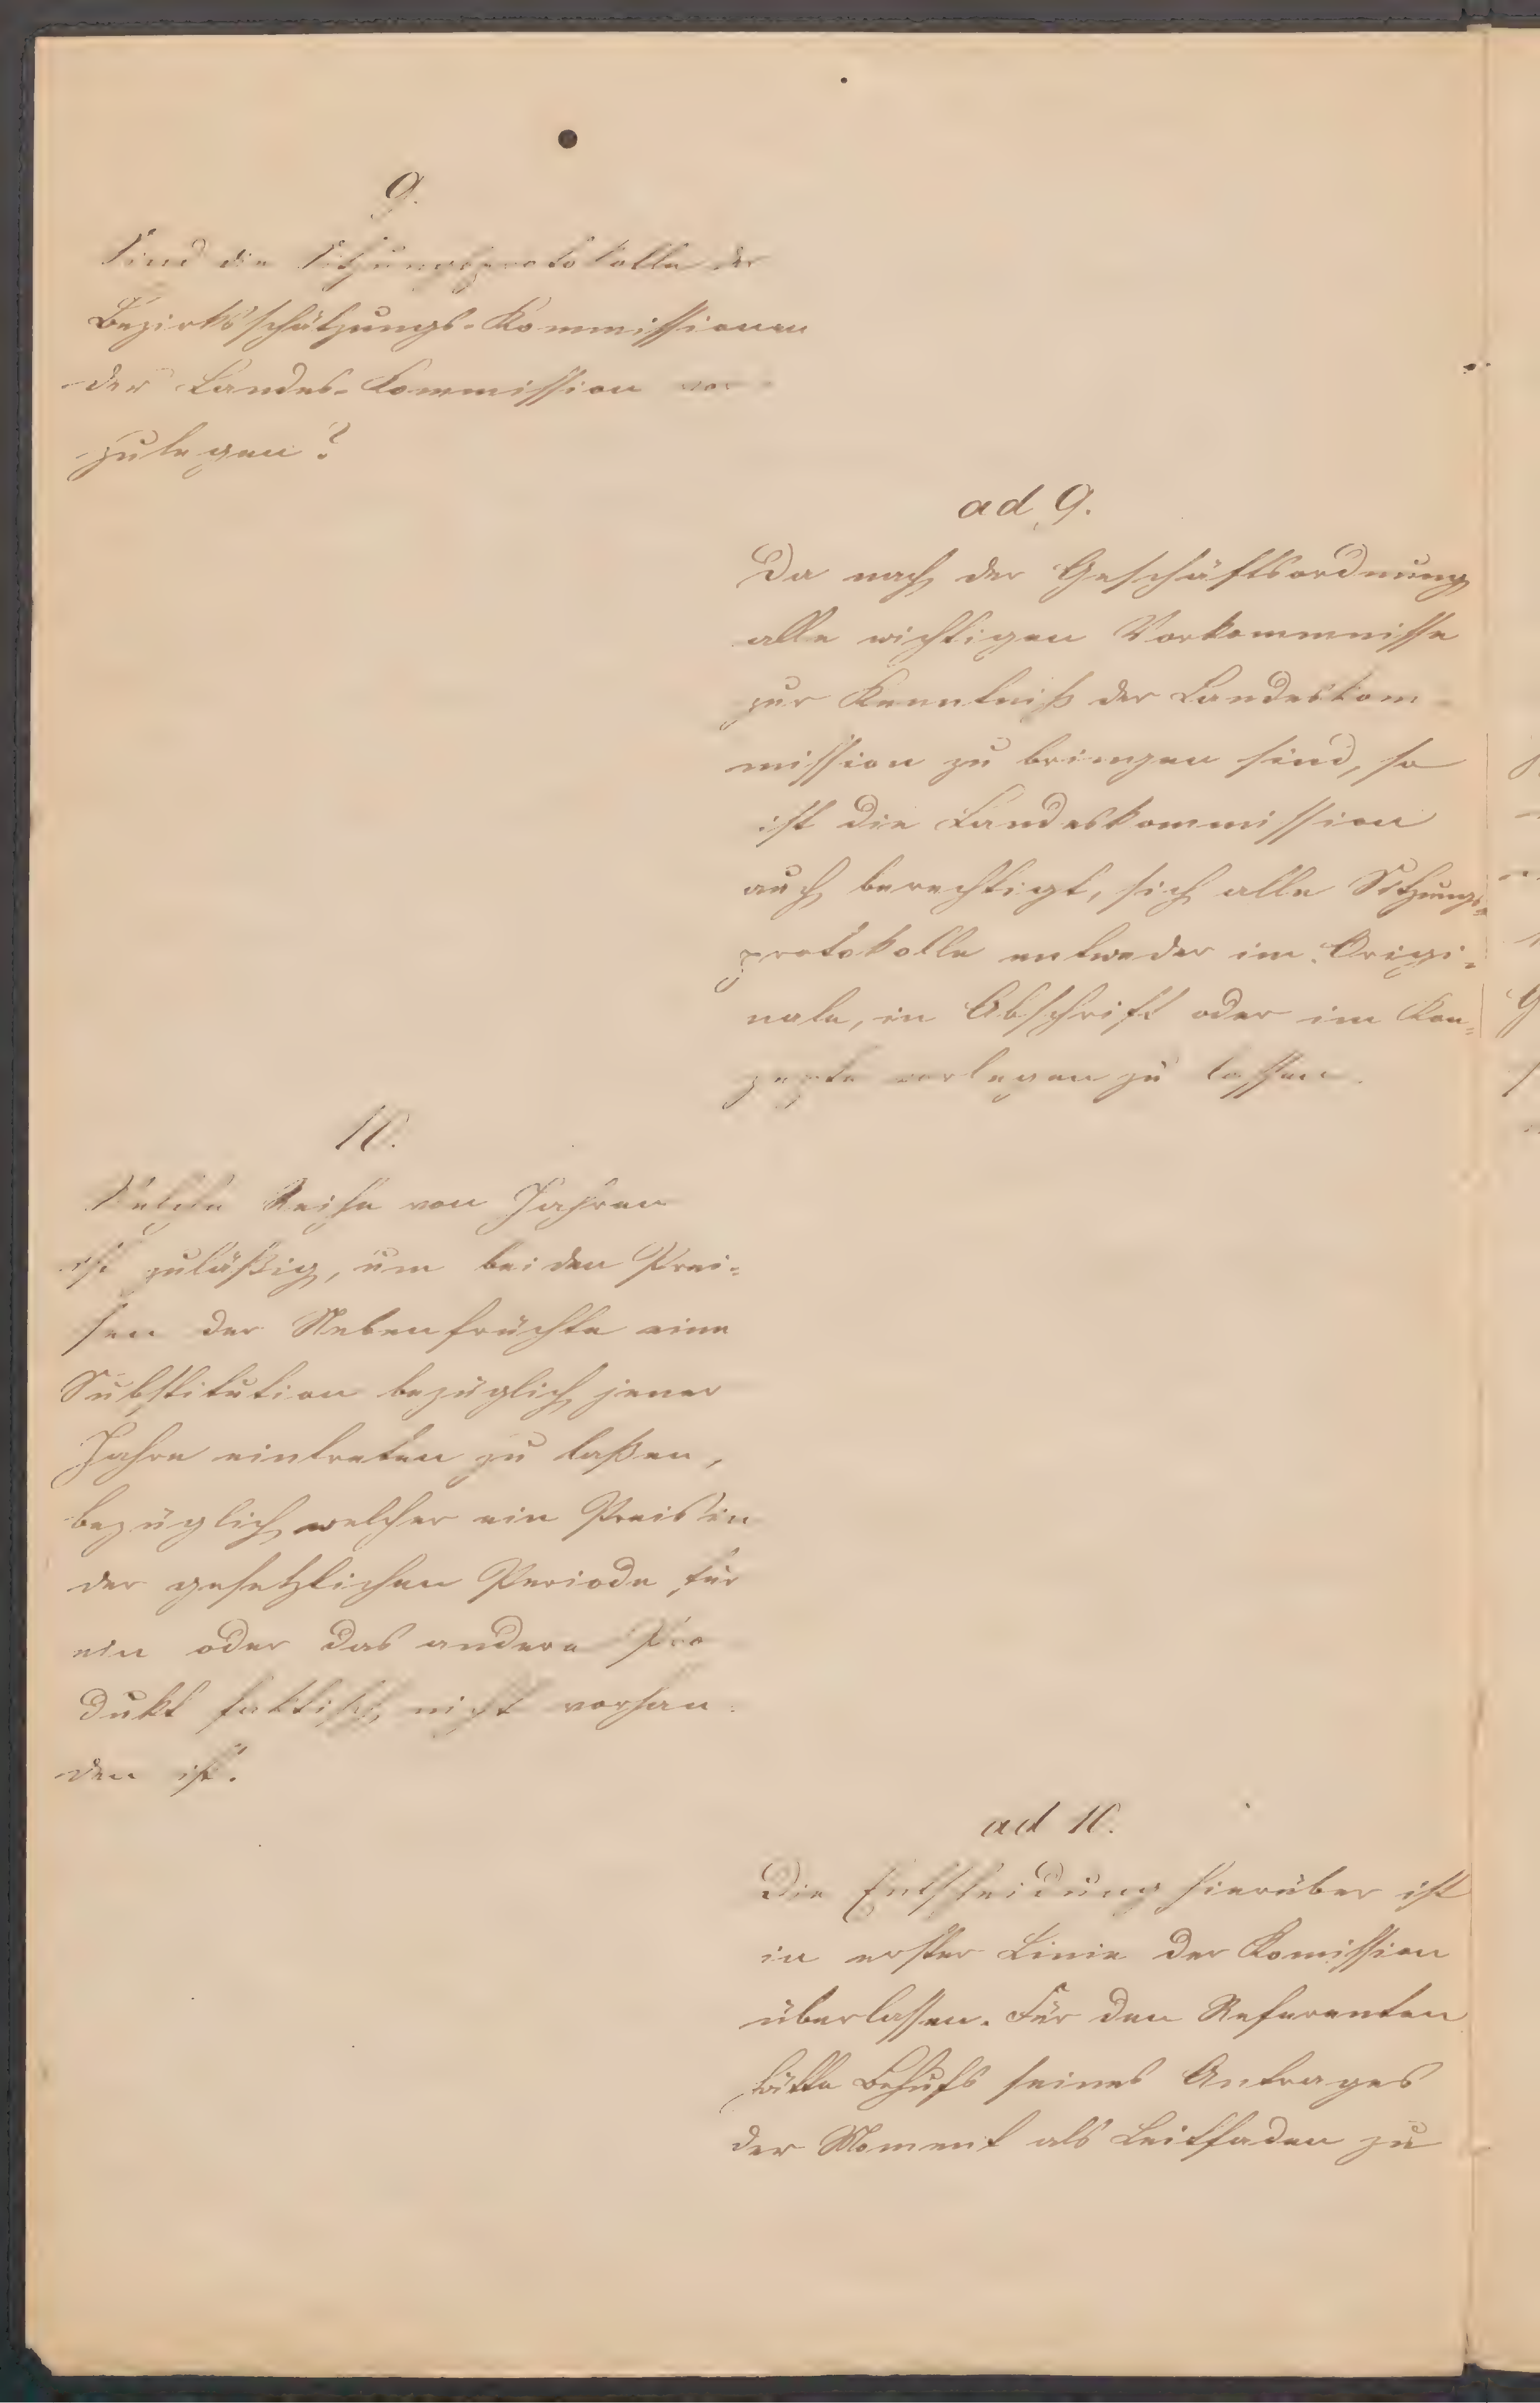 9.
Sind die Sitzungsprotokolle der
Bezirksschätzungs-Kommissionen
der Landes-Kommission vor
zulegen?
ad 9.
Da nach der Geschäftsordnung
alle wichtigen Vorkommnisse
zur Kenntniß der Landeskom-
mission zu bringen sind, so
ist die Landeskommission
auch berechtigt, sich alle Sitzungs-
protokolle entweder im Origi-
nale, in Abschrift oder im Kon-
zepte vorlegen zu lassen.
10.
Welche Reihe von Jahren
ist zuläßig, um bei den Prei-
sen der Nebenfrüchte eine
Substitution bezüglich jener
Jahre eintreten zu laßen,
bezüglich welcher ein Preis in
der gesetzlichen Periode für
ein oder das andere Pro
dukt faktisch nicht vorhan-
den ist.
ad 10.
Die Entscheidung hierüber ist
in erster Linie der Komission
überlassen. Für den Referenten
hätte Behufs seines Antrages
der Moment als Leitfaden zu